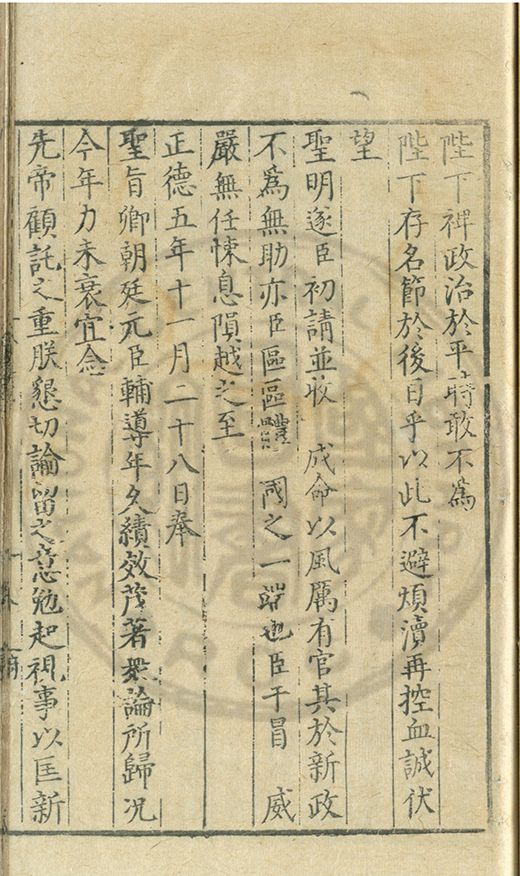 陛下裨政治於平時敢不爲
陛下存名節於後日乎以此不避煩瀆再控血誠伏
望
聖明遂臣初請並收 成命以風厲有官其於新政
不爲無助亦臣區區體 國之一端也臣干冒 威
嚴無任悚息隕越之至
正德五年十一月二十八日奉
聖旨卿朝廷元臣輔導年久績效茂著衆論所歸况
今年力未衰宜念
先帝顧託之重朕懇切諭留之意勉起視事以匡新